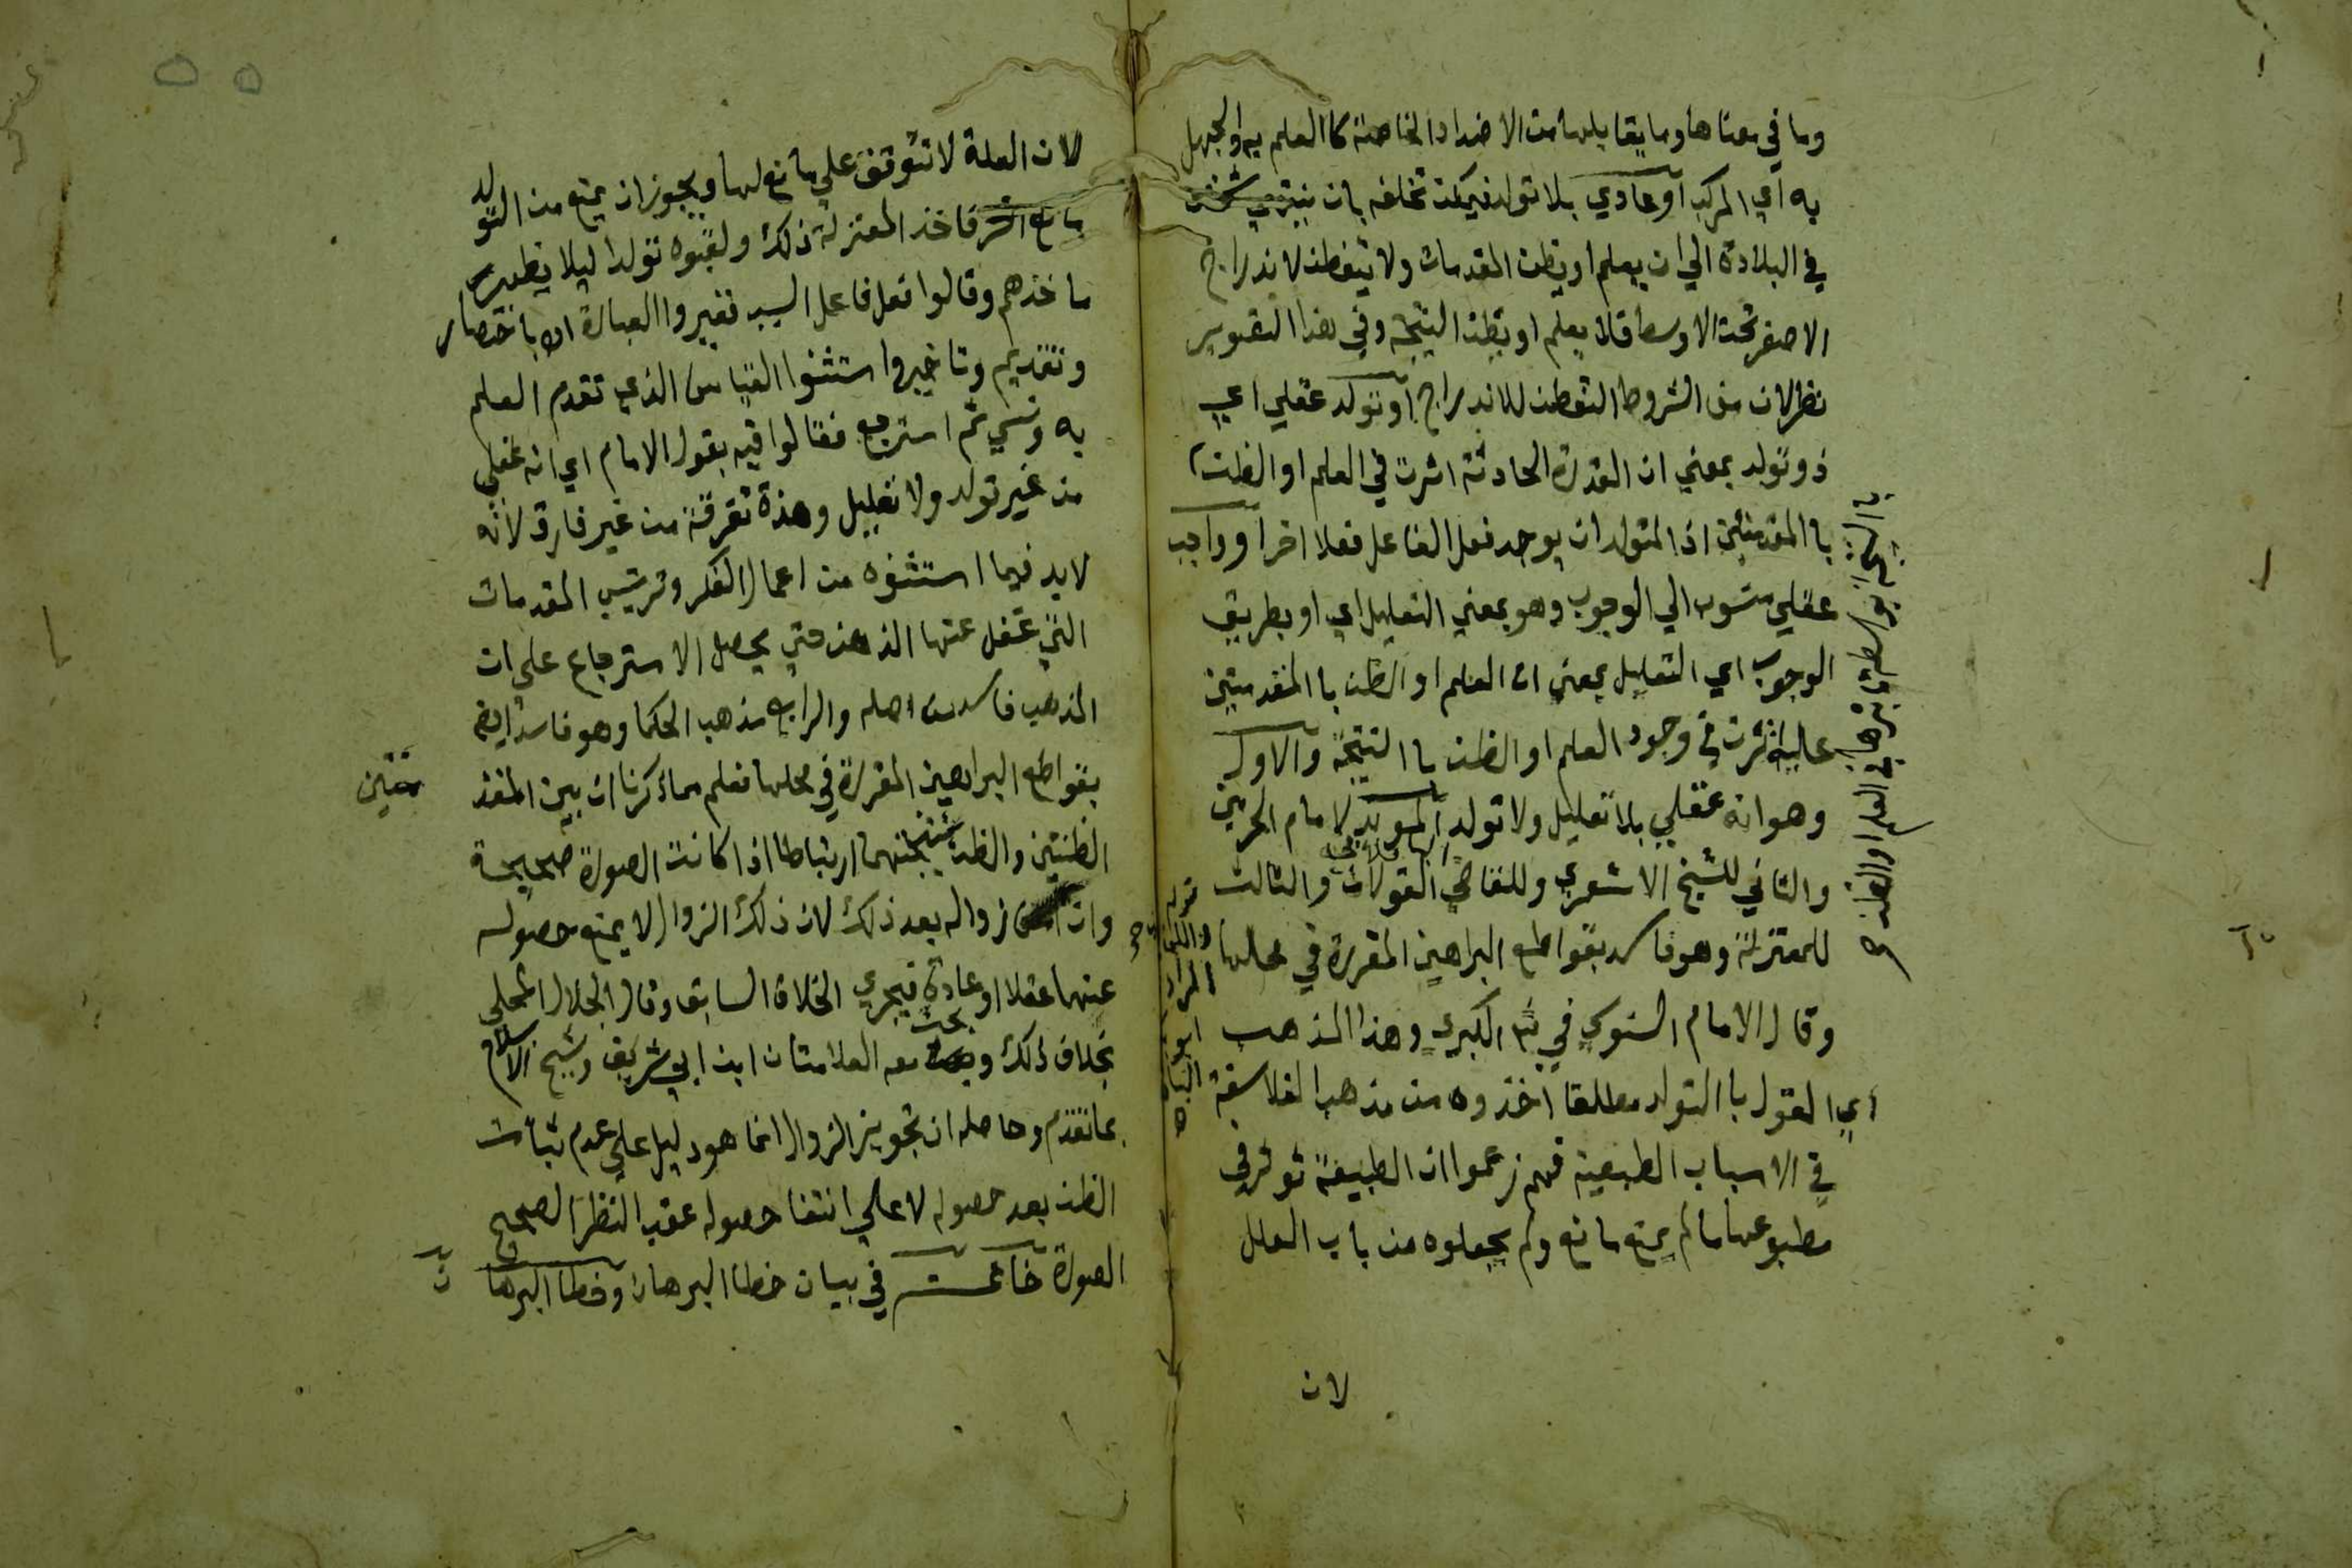 وما في معناها وما يقابلها من الاضداد الخاصة كا العلم به والجهل
به اي المركب او عادي بلا تولد فيمكن تخلفه بان ينتهي شخص
في البلادة الي ان يعلم او يظن المقدمات ولا يتفطن لاندراج
الاصغر تحت الاوسط فلا يعلم او يظن النتيجة وفي هذا التقرير
نظر لان من الشروط التفطن للاندراج او تولد عقلي اي
ذو تولد بمعني ان القدرة الحادثة اثرت في العلم او الظن
با المقدمتين اذ المتولد ان يوجد فعل الفاعل فعلا اخر او واجب
عقلي منسوب الي الوجوب وهو بمعني التعليل اي او بطريق
الوجوب اي التعليل بمعني ان العلم او الظن با المقدمتين
علة اثرت في وجود العلم او الظن با النتيجة والاول
وهو انه عقلي بلا تعليل ولا تولد المويد لامام الحرمين
والثاني للشيخ الاشعري وللقاضي القولان والثالث
للمعتزلة وهو فاسد بقواطع البراهين المقررة في محلها
وقال الامام السنوسي في شرح الكبري وهذا المذهب
اي القول با التولد مطلقا اخذوه من مذهب الفلاسفة
في الاسباب الطبيعية فهم زعموا ان الطبيعة توثر في
مطبوعها ما لم يمنع مانع ولم يجعلوه من باب العلل
لان
با النتيجة بواسطة تاثيرها في العلم او الظن
لان العلة لا تتوقف علي مانع لها ويجوز ان يمنع من التولد
مانع اخر فاخذ المعتزلة ذلك ولقبوه تولدا ليلا يظهر
ماخذهم وقالوا فعل فاعل السبب فغيروا العبارة الا باختصار
وتقديم وتاخير واستثنوا القياس الذي تقدم العلم
به ونسي ثم استرجع فقالوا فيه بقول الامام اي انه عقلي
من غير تولد ولا تعليل وهذة تفرقة من غير فارق لانه
لابد فيما استثنوه من اعمال الفكر وترتيب المقدمات
التي غفل عنها الذهن حتي يحصل الاسترجاع علي ان
المذهب فاسد من اصله والرابع مذهب الحكما وهو فاسد ايضا
بقواطع البراهين المقررة في محلها فعلم مما ذكرنا ان بين المقد
متين
الظنيتين والظن بنتيجتهما ارتباطا اذا كانت الصورة صحيحة
وان امكن زواله بعد ذلك لان ذلك الزوال لا يمنع حصوله
عنهما عقلا او عادة فيجري الخلاف السابق وقال الجلال المحلي
بخلاف ذلك وبحث معه العلامتان ابن ابي شريف وشيخ الاسلام
بما تقدم وحاصله ان تجويز الزوال انما هو دليل علي عدم ثبات
الظن بعد حصوله لا علي انتفا حصوله عقب النظر الصحيح
الصورة خاتمة في بيان خطا البرهان وخطا البرها
ن